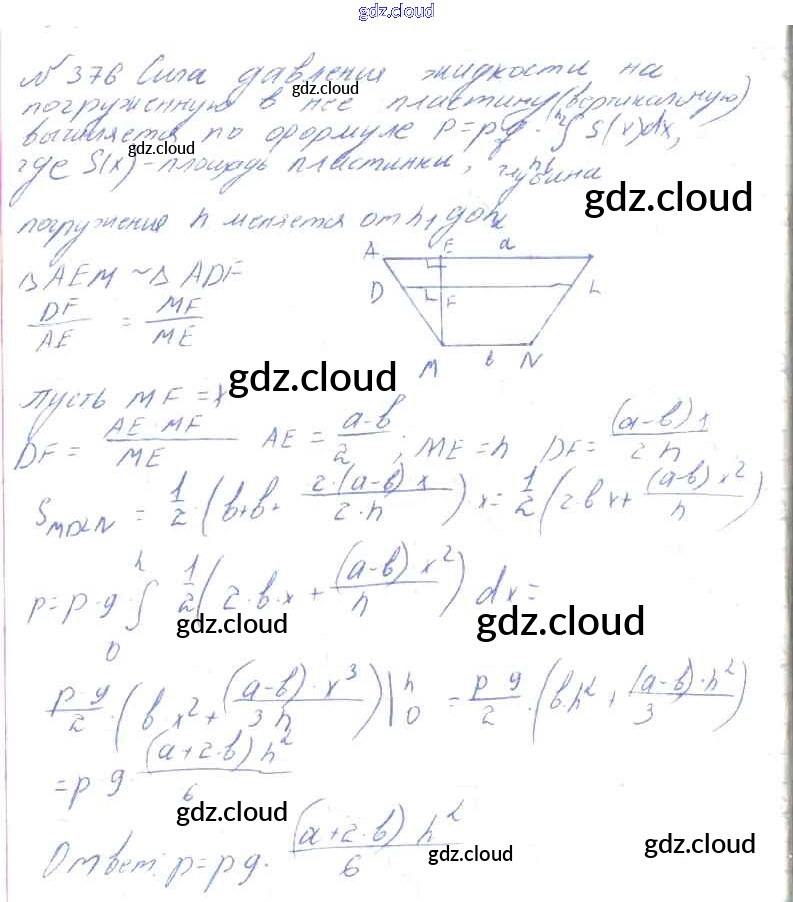 gdz.cloud
№ 376 Сила давления жидкости на
gdz.cloud
погруженную в нее пластину (вертикальную)
вычисляется по формуле P = ρg · ∫ S(x)dx,
gdz.cloud
где S(x) – площадь пластинки, глубина
gdz.cloud
погружения h меняется от h₁ до h₂
A E a
Δ AEM ~ Δ ADF
D F L
DF/AE = MF/ME
M b N
gdz.cloud
Пусть MF = x
DF = AE·MF/ME AE = (a-b)/2; ME = h DF = (a-b)x/2h
S_MDLN = 1/2 · (b+b+ 2·(a-b)x/2·h) x = 1/2 (2·bx + (a-b)x²/h)
P = ρ·g·∫₀ʰ 1/2 (2·b·x + (a-b)x²/h) dx =
gdz.cloud gdz.cloud
ρ·g/2 · (b·x² + (a-b)·x³/3h) |₀ʰ = ρ g/2 · (b·h² + (a-b)·h²/3)
= ρ g · (a+2·b)h²/6
gdz.cloud
Ответ: P = ρg · (a+2·b)h²/6
gdz.cloud gdz.cloud